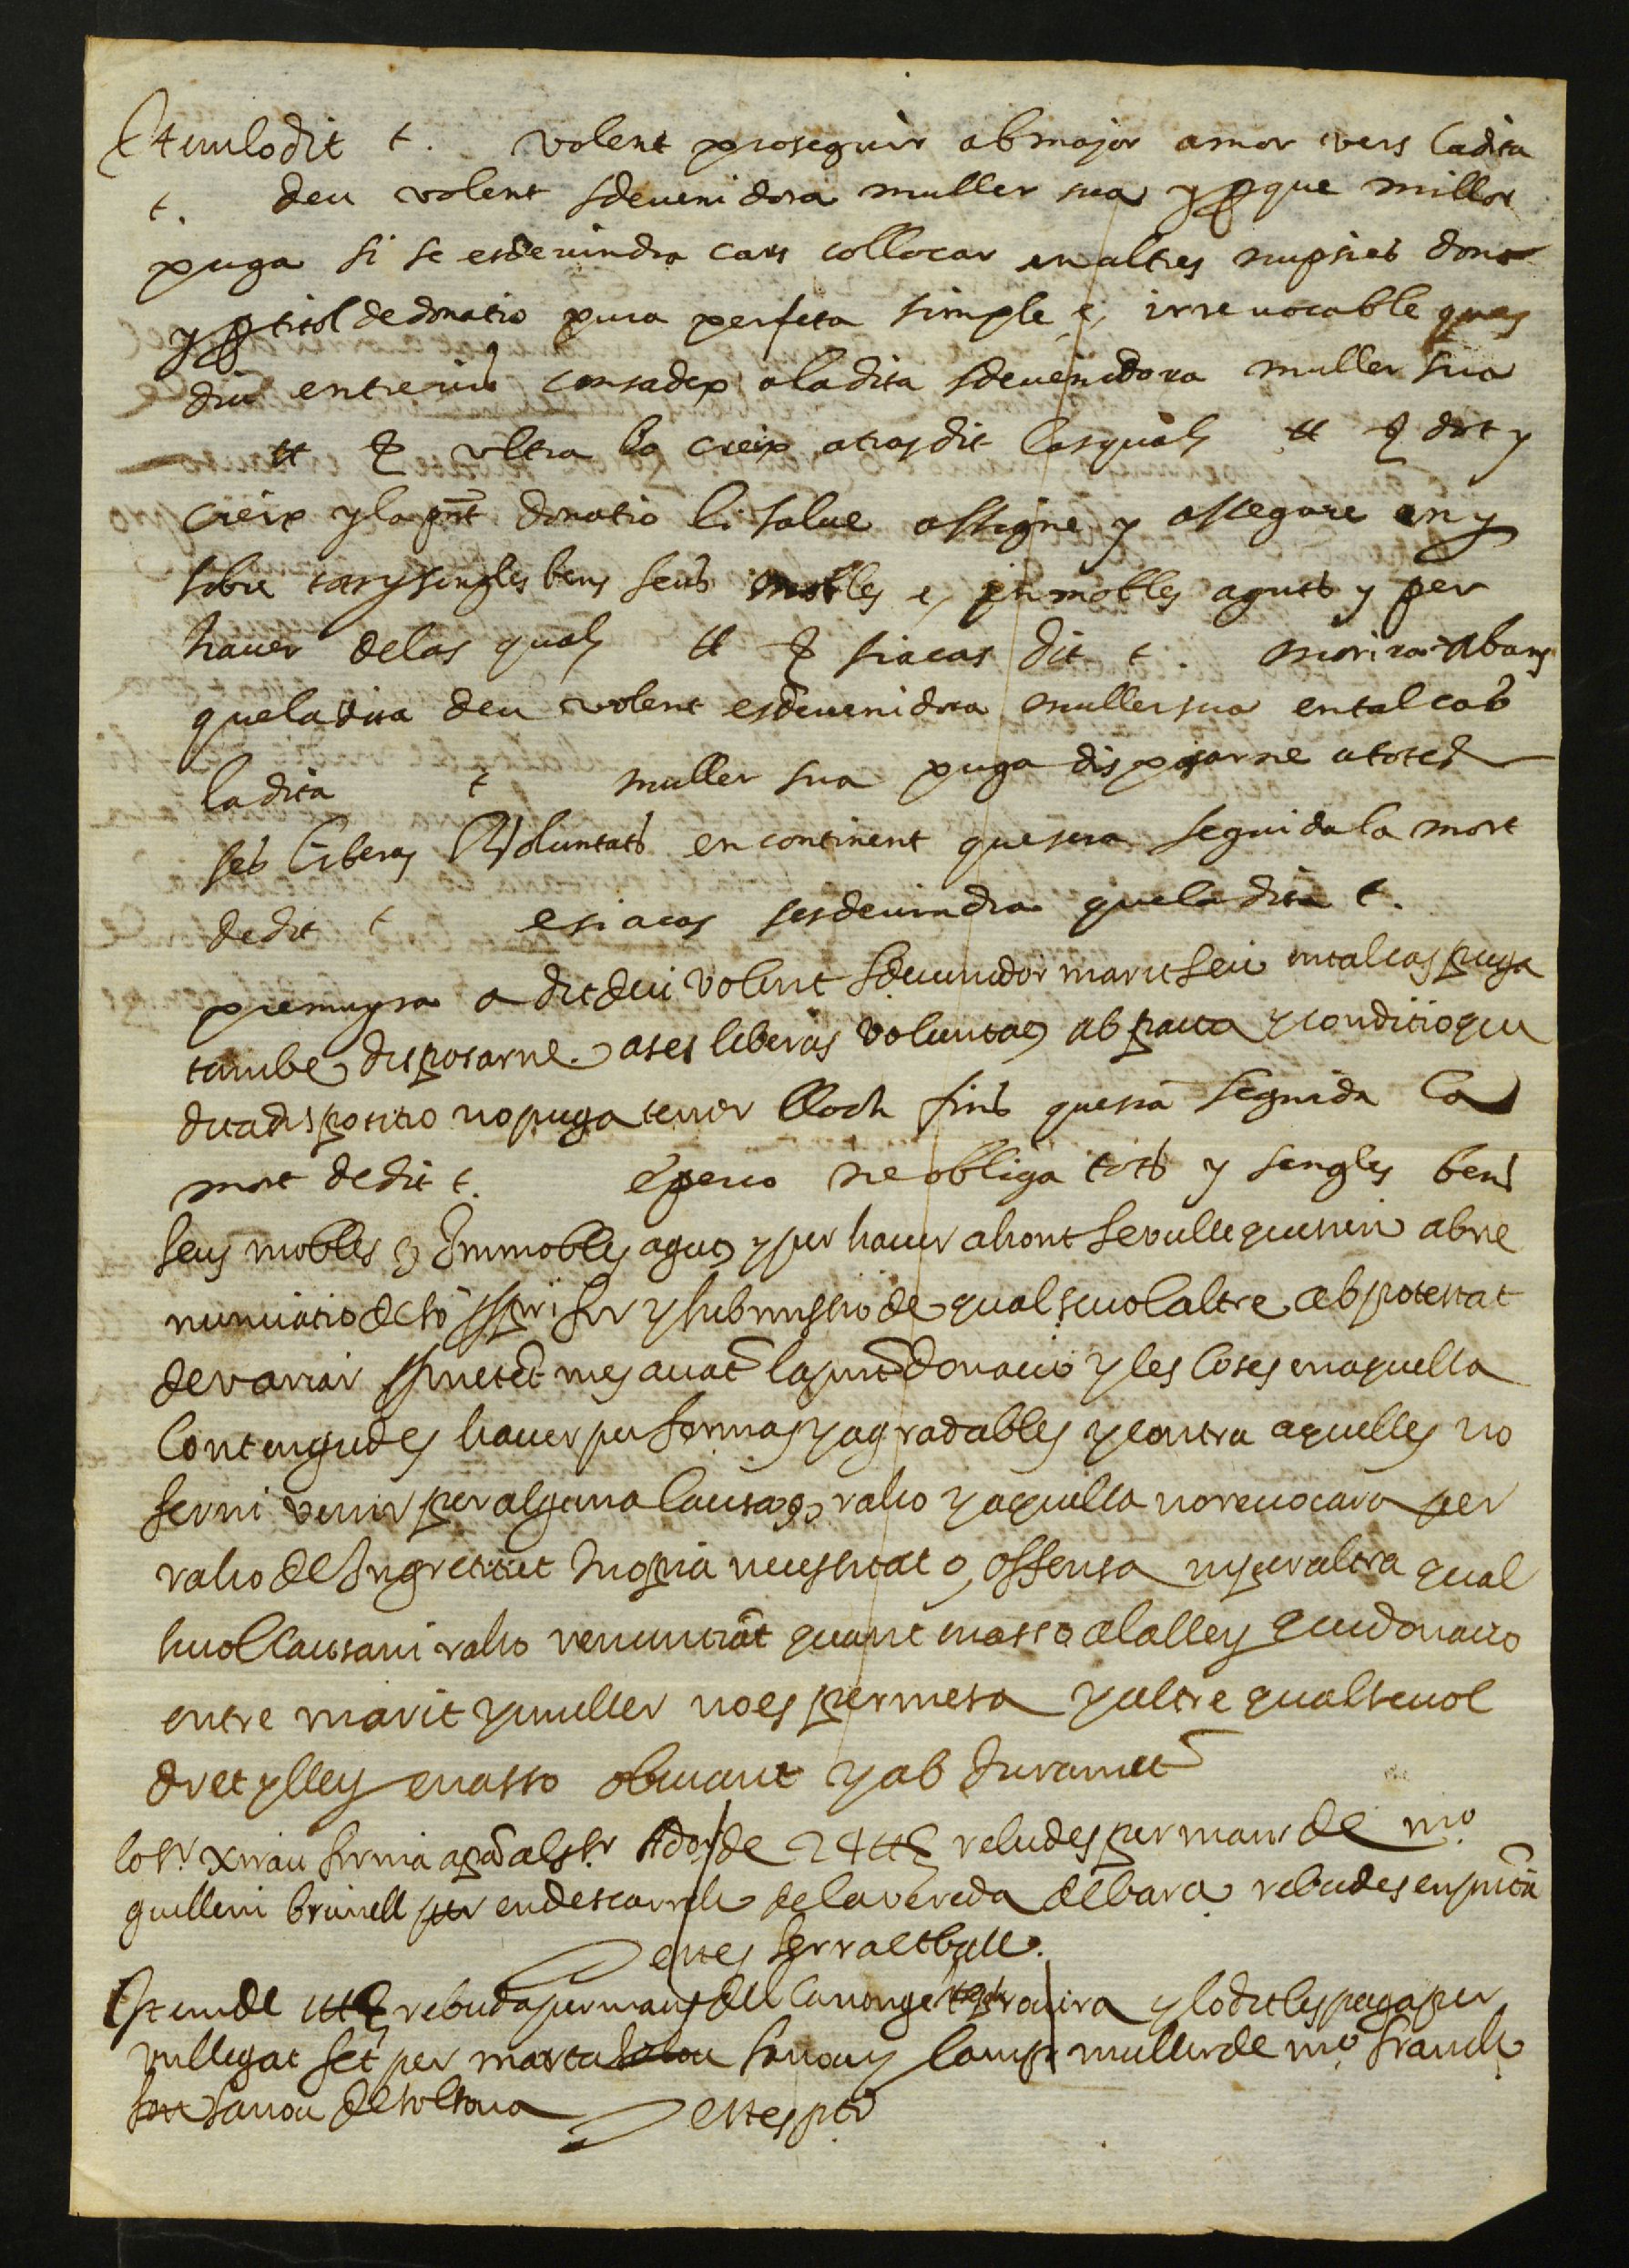 Item lo dit t. volent proseguir ab major amor vers la dita
t. deu volent sdevenidora muller sua y p que millor
puga si se esdevindra cars collocar en altres nupsies dona
y p titol de donatio pura perfeta simple e, irrevocable ques
diu entre vius consadex a la dita sdevenidora muller sua
tt ultra lo creix atras dit las quals tt dot y
creix y la pnt donatio li salve assigne y assegure en y
sobre tots y sengles bens seus mobles e, inmobles aguts y per
haver de las quals tt si a cas dit t. morira abans
que la dita deu volent esdevenidora muller sua en tal cas
la dita t muller sua puga disposarne a totes
ses liberas voluntats en continent que sera seguida la mort
de dit t e si a cas sesdevindra que la dita t.
premuyra a dit deu volent sdevenidor marit seu en tal cas puga
tambe disposarne a ses liberas voluntats ab pacte y conditio que
dita dispositio no puga tenir lloch fins que sia seguida la
mort de dit t. e per ço ne obliga tots y sengles bens
seus mobles e, Immobles aguts y per haver ahont se vulle que sien ab re
nunciatio de so for y submissio de qualsevol altre ab potestat
de variar prometet mes avat la pnt donacio y les coses en aquella
contengudes haver per fermas y agradables y contra aquelles no
fer ni venir per alguna causa o, raho y aquella no revocara per
raho de Ingratitut Inopia necessitat o, offensa ni per altra qual
sevol causa ni raho renunciat quant en asso a la lley que donacio
entre marit y muller no es permesa y altre qualsevol
dret y lley en asso obviant y ab Jurament
lo Sr xirau firma apocha al Sr de 24 tt rebudes per mans de mo
guillem brunell per en descarrech de la vereda de bara rebudes en pntia
testes serra et batlle.
Item de tt rebuda per mans del canonge rovira y lo dit les paga per
un llegat fet per marta sanou y muller de mo franch
sanou de solsona testes pdt